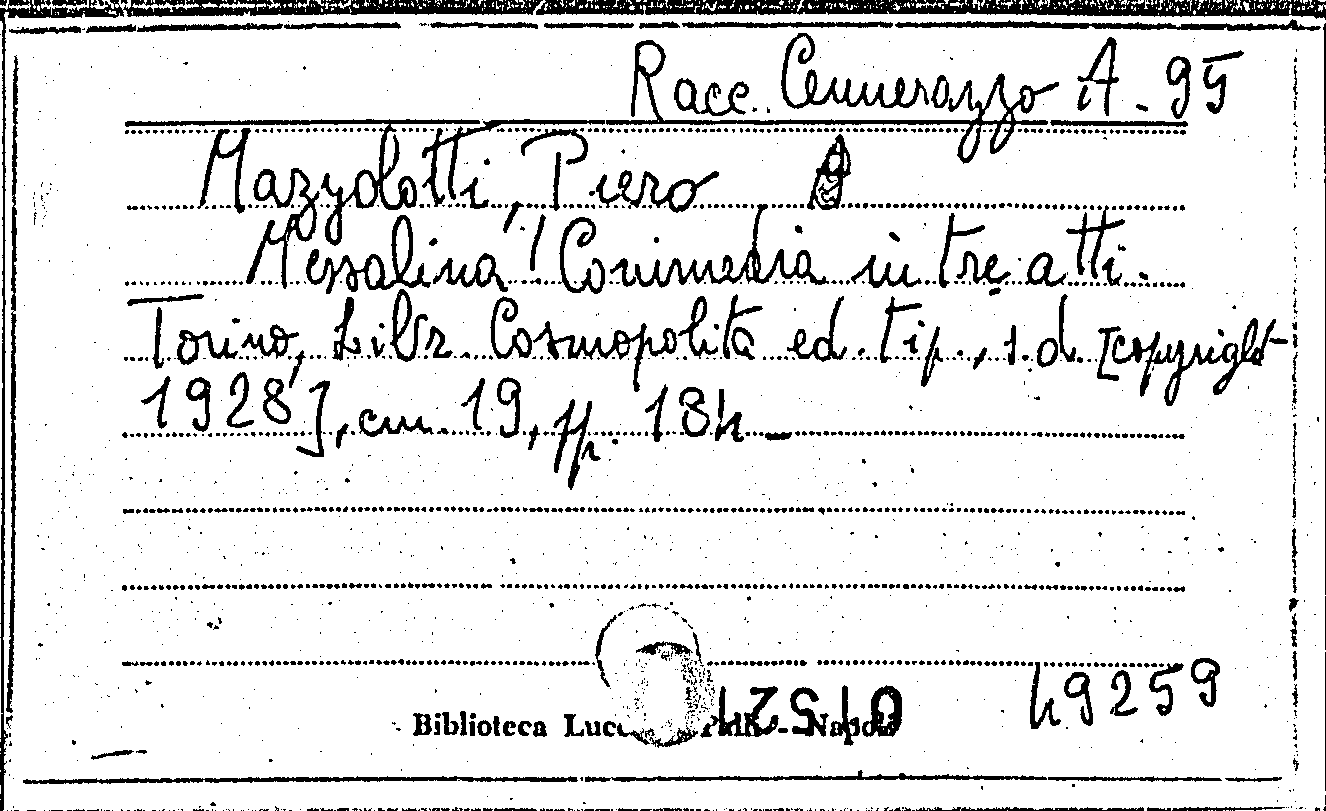 Racc. Cennerazzo A. 95
Mazzolotti, Piero
Messalina! Commedia in tre atti.
Torino, Libr. Cosmopolita ed. tip., s.d. [copyright
1928], cm. 19, pp. 184 -
49259
Biblioteca Lucc Napoli